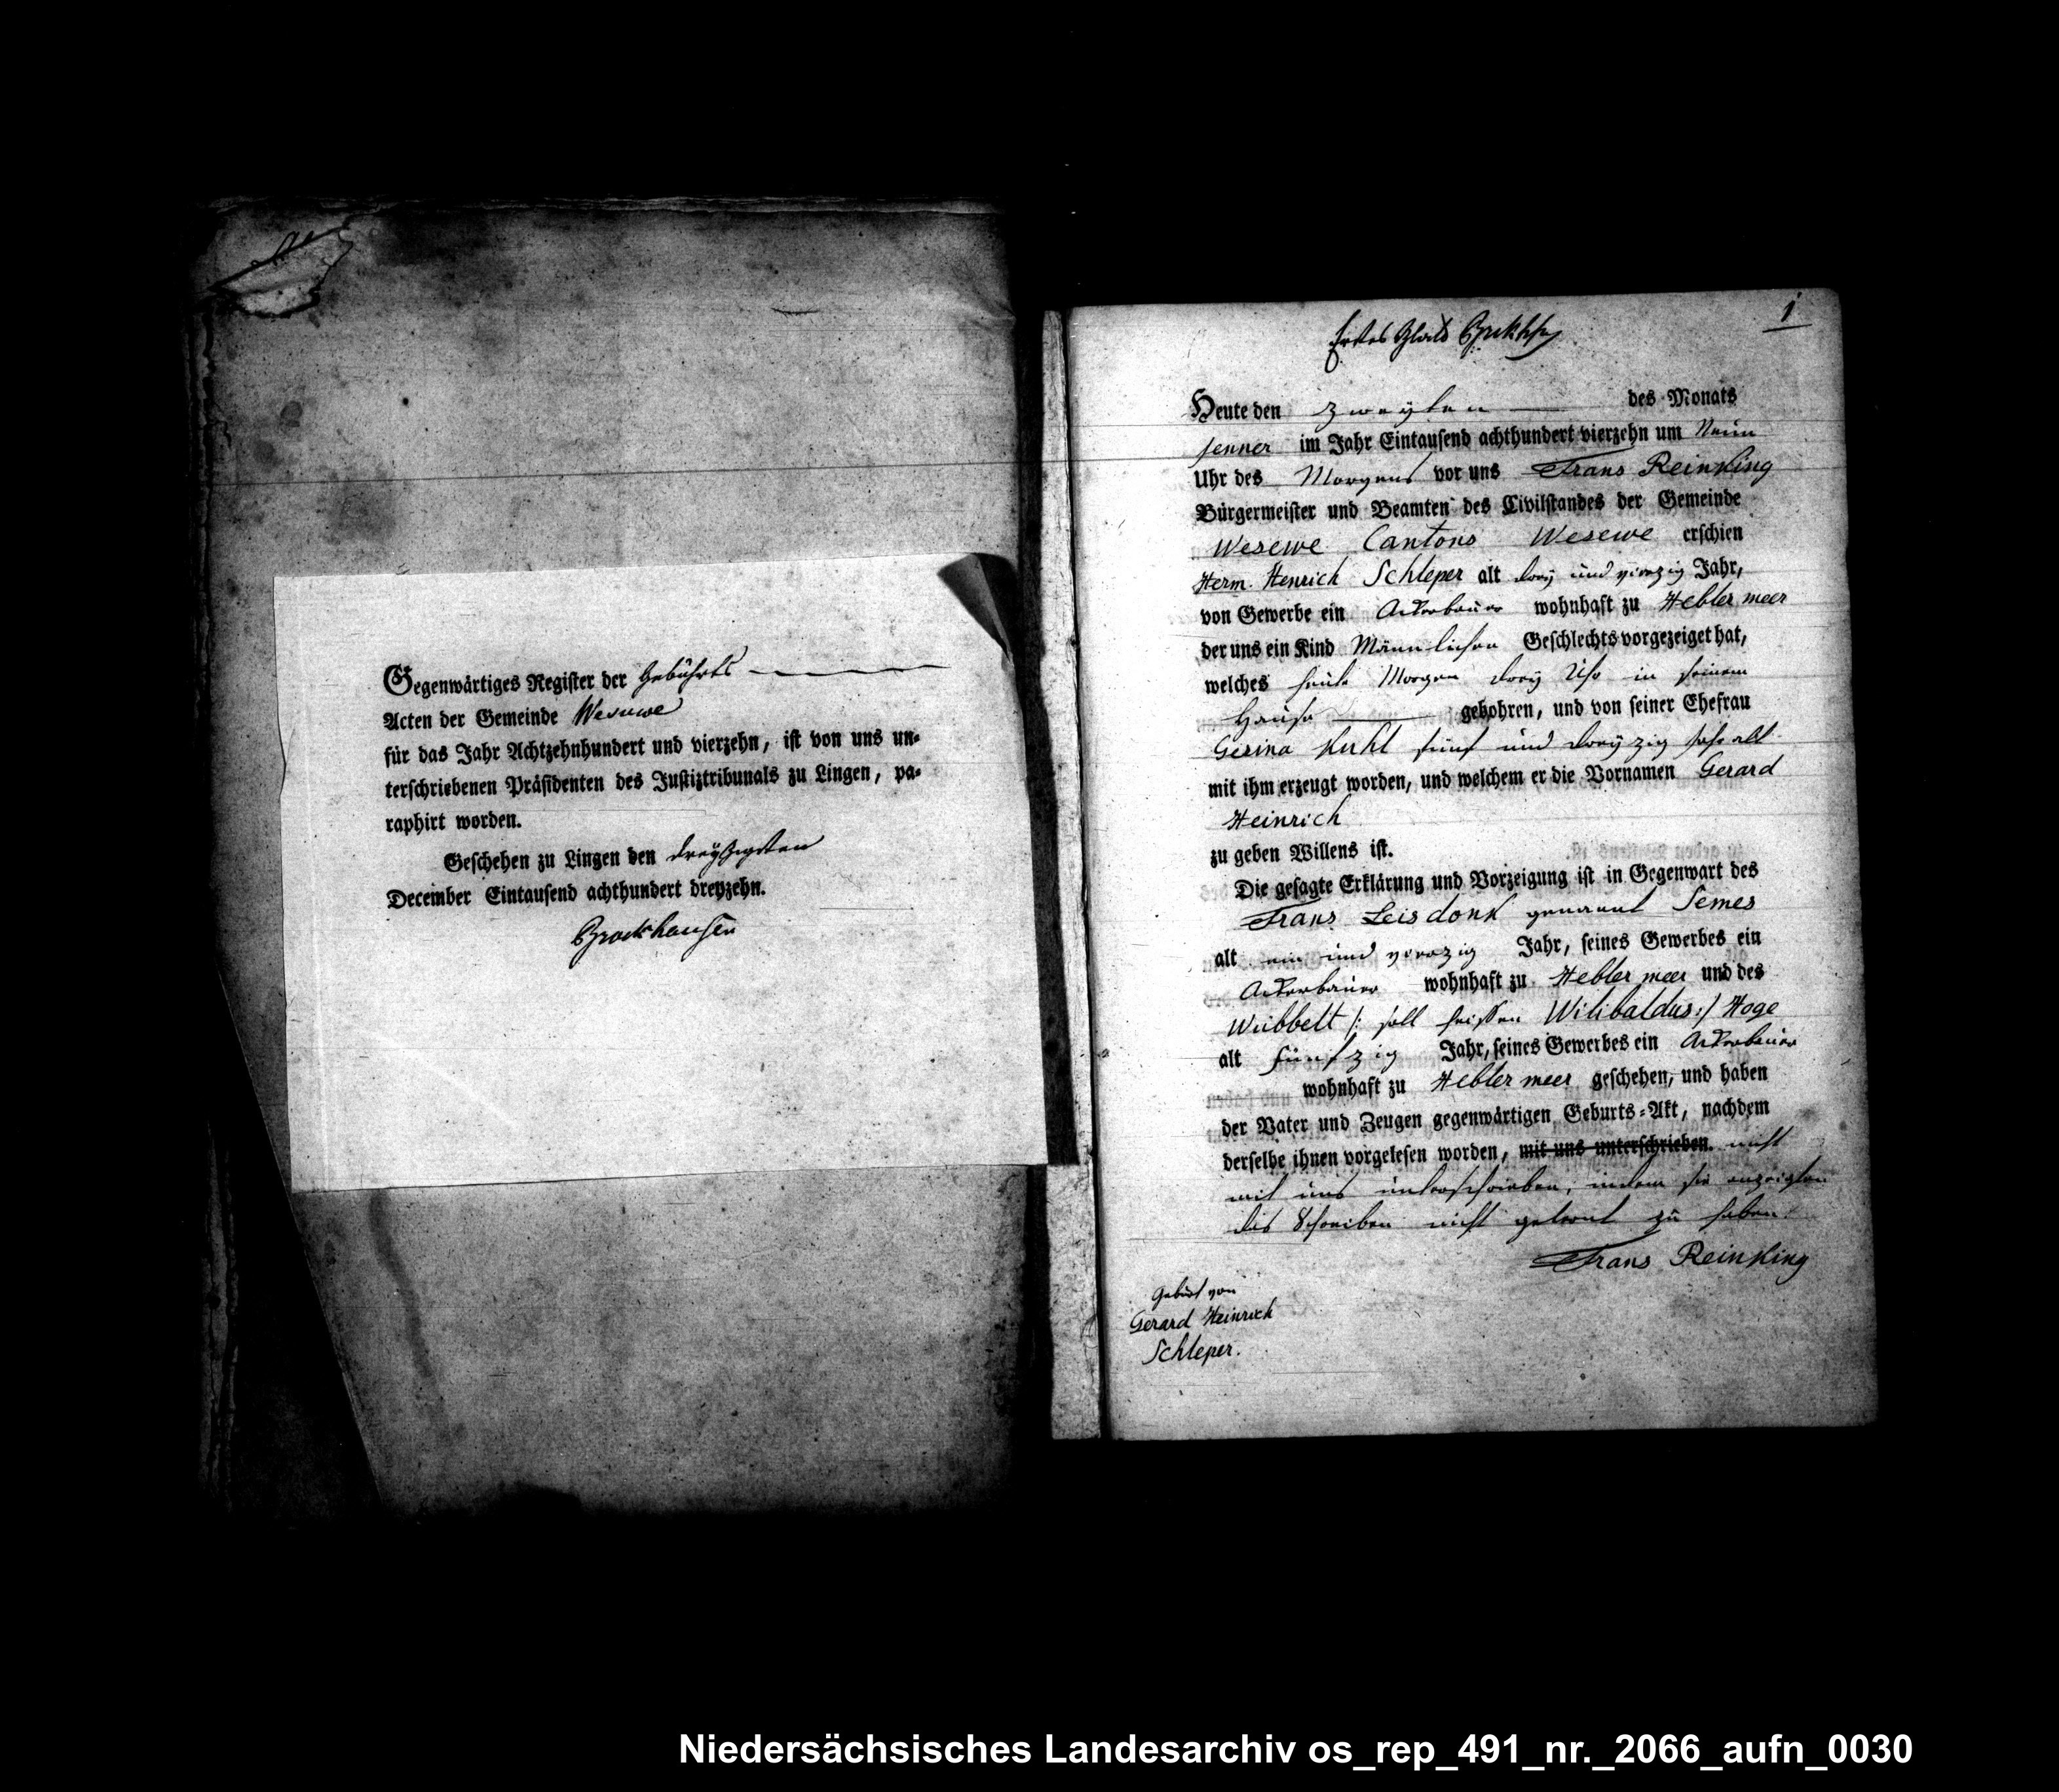 Gegenwärtiges Register der Gebuhrts
Acten der Gemeinde Wesuwe
für das Jahr Achtzehnhundert und vierzehn, ist von uns un-
terschriebenen Präsidenten des Justiztribunals zu Lingen, pa-
raphirt worden.
Geschehen zu Lingen den dreyßigsten
December Eintausend achthundert dreyzehn.
Brockhausen
1
Erstes Blatt
Heute den zweyten des Monats
Jenner im Jahr Eintausend achthundert vierzehn um Neun
Uhr des Morgens vor uns Frans Reinking
Bürgermeister und Beamten des Civilstandes der Gemeinde
Wesewe Cantons Wesewe erschien
Herm. Henrich Schleper alt drey und vierzig Jahr,
von Gewerbe ein Ackerbauer wohnhaft zu Heblermeer
der uns ein Kind Männlichen Geschlechts vorgezeiget hat,
welches heute Morgen drey Uhr in seinem
Hause gebohren, und von seiner Ehefrau
Gesina Kuhl fünf und dreyzig Jahr alt
mit ihm erzeugt worden, und welchem er die Vornamen Gerard
Heinrich
zu geben Willens ist.
Die gesagte Erklärung und Vorzeigung ist in Gegenwart des
Frans Leisdonk genannt Semes
alt ein und vierzig Jahr, seines Gewerbes ein
Ackerbauer wohnhaft zu Heblermeer und des
Wübbelt /: soll heißen Wilibaldus :/ Hoge
alt fünfzig Jahr, seines Gewerbes ein Ackerbauer
wohnhaft zu Heblermeer geschehen, und haben
der Vater und Zeugen gegenwärtigen Geburts-Akt, nachdem
derselbe ihnen vorgelesen worden, mit uns unterschrieben. nicht
mit uns unterschrieben, indem sie anzeigten
das Schreiben nicht gelernt zu haben.
Frans Reinking
Geburt von
Gerard Heinrich
Schleper.
Niedersächsisches Landesarchiv os_rep_491_nr._2066_aufn_0030